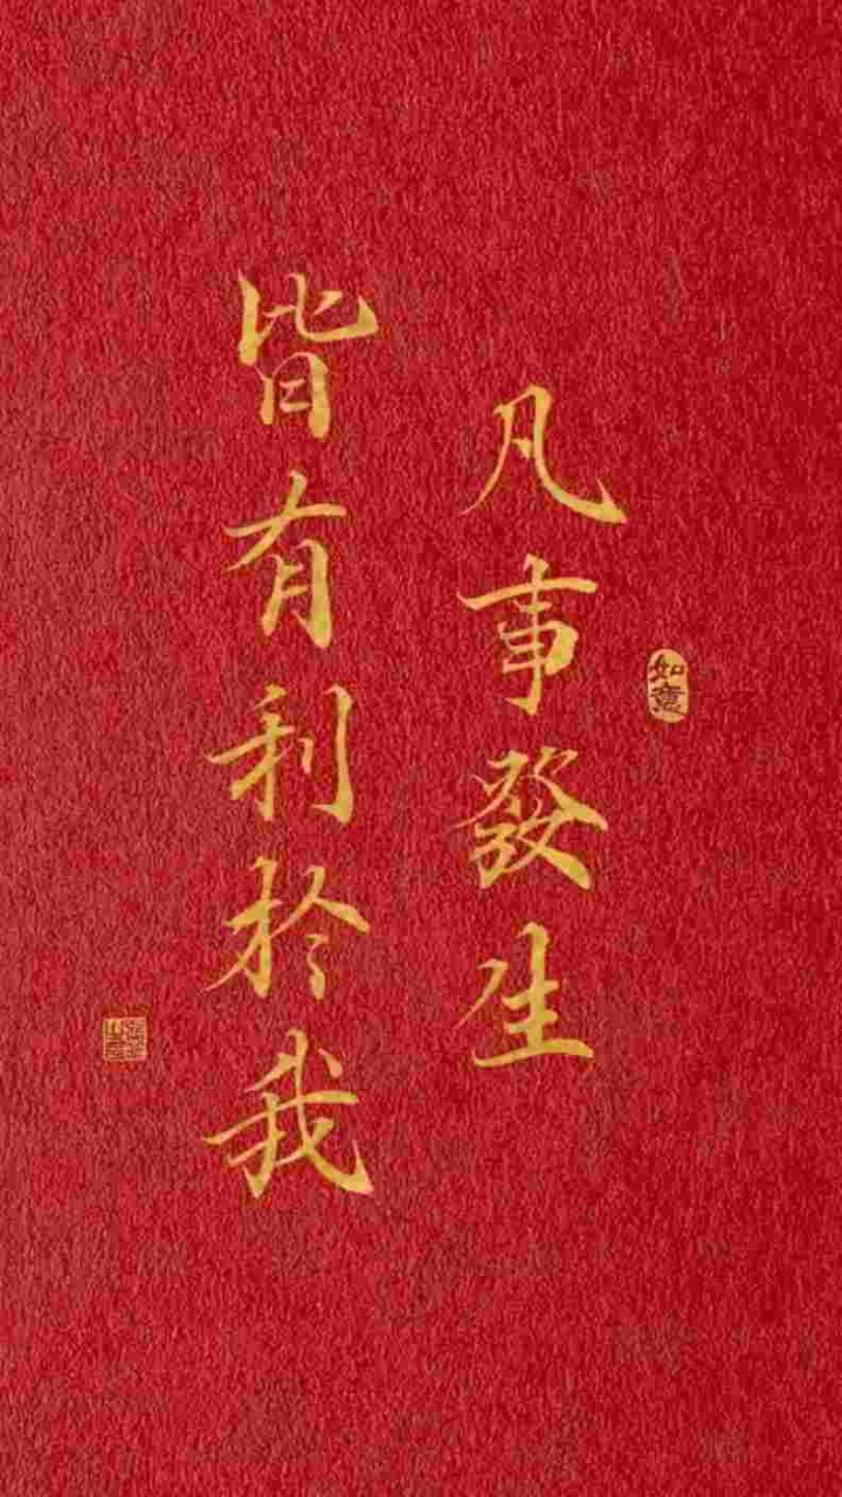 凡事發生
皆有利於我
如意